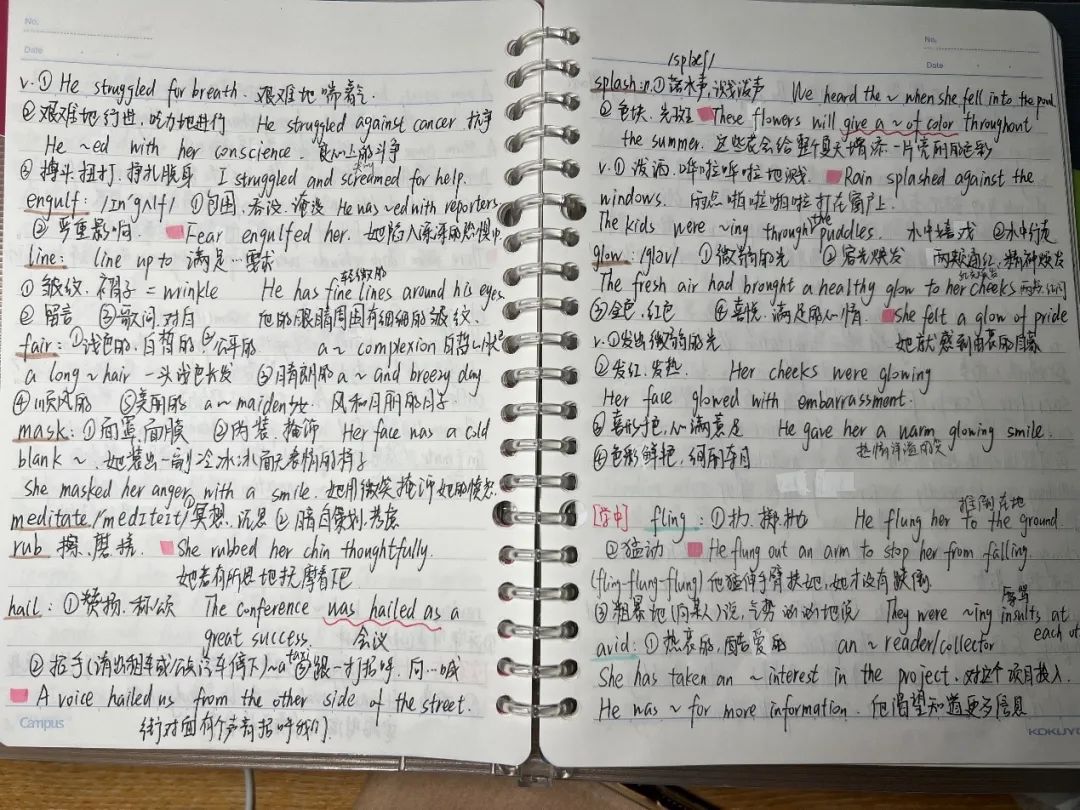 No.
Date
v. ① He struggled for breath. 艰难地喘着气.
② 艰难地行进, 吃力地进行 He struggled against cancer. 抗争
He ~ed with her conscience. 良心上的斗争
③ 搏斗.扭打. 挣扎脱身 I struggled and screamed for help.
engulf: /ɪnˈgʌlf/ ①包围. 吞没. 淹没 He was ~ed with reporters
② 严重影响. Fear engulfed her. 她陷入深深的恐惧中.
line: line up to 满足…要求
轻微的
① 皱纹. 褶子 = wrinkle He has fine lines around his eyes.
② 留言 ③歌词.对白 他的眼睛周围有细细的皱纹.
fair: ①浅色的, 白皙的, ②公平的 a ~ complexion 白皙的肤色
a long ~ hair 一头浅色长发 ③晴朗的 a ~ and breezy day
④顺风的 ⑤美丽的 a ~ maiden 少女 风和日丽的日子
mask: ①面罩, 面膜 ②伪装. 掩饰 Her face was a cold
blank ~. 她装出一副冷冰冰面无表情的样子
She masked her anger with a smile. 她用微笑掩饰她的愤怒.
meditate /medɪteɪt/ ①冥想. 沉思 ②暗自策划.考虑
rub 擦.磨.搓. She rubbed her chin thoughtfully.
她若有所思地抚摩着下巴
hail: ①赞扬. 称颂 The conference was hailed as a
great success. 会议
② 招手(请出租车或公共汽车停下) ~ a taxi ③跟…打招呼. 向…喊
A voice hailed us from the other side of the street.
街对面有个声音招呼我们.
Campus
No.
Date
/splæʃ/
splash: n. ①落水声, 泼溅声 We heard the ~ when she fell into the pool.
② 色块. 光斑 These flowers will give a ~ of color throughout
the summer. 这些花会给整个夏天增添一片亮丽的色彩
v. ① 泼洒. 哗啦哗啦地溅. Rain splashed against the
windows. 雨点啪啦啪啦打在窗户上.
The kids were ~ing through the puddles. 水中嬉戏 ②水中行走
glow: /gloʊ/ ①微弱的光 ②容光焕发 两颊通红.精神焕发
The fresh air had brought a healthy glow to her cheeks 两颊红润
③金色. 红色 ④喜悦. 满足的心情. She felt a glow of pride
v. ①发出微弱的光 她就感到由衷的自豪
②发红. 发热. Her cheeks were glowing
Her face glowed with embarrassment.
③喜形于色, 心满意足 He gave her a warm glowing smile.
热情洋溢的笑
④色彩鲜艳, 绚丽夺目
推倒在地
[高中] fling: ①扔. 掷. 抛 He flung her to the ground.
②猛动 He flung out an arm to stop her from falling
(fling-flung-flung) 他猛伸手臂扶她, 她才没有跌倒
辱骂
③粗暴地(向某人)说, 气势汹汹地说 They were ~ing insults at
each other
avid: ①热衷的, 酷爱的 an ~ reader/collector
She has taken an ~ interest in the project. 对这个项目投入.
He was ~ for more information. 他渴望知道更多信息
KOKUYO